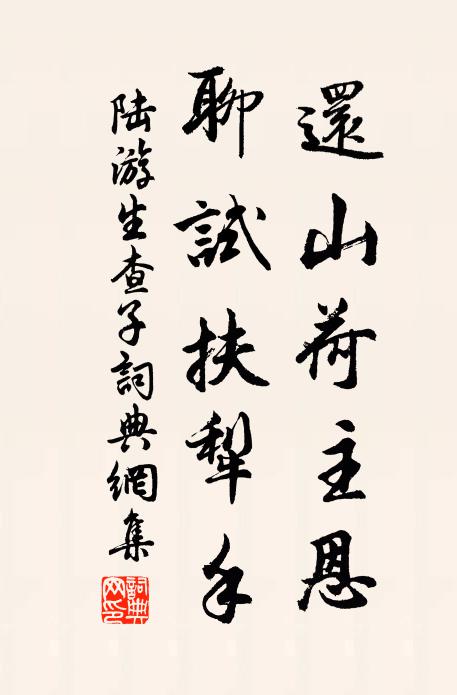 還山荷主恩
聊試扶犁手
陸游生查子詞典網集
詞典網印